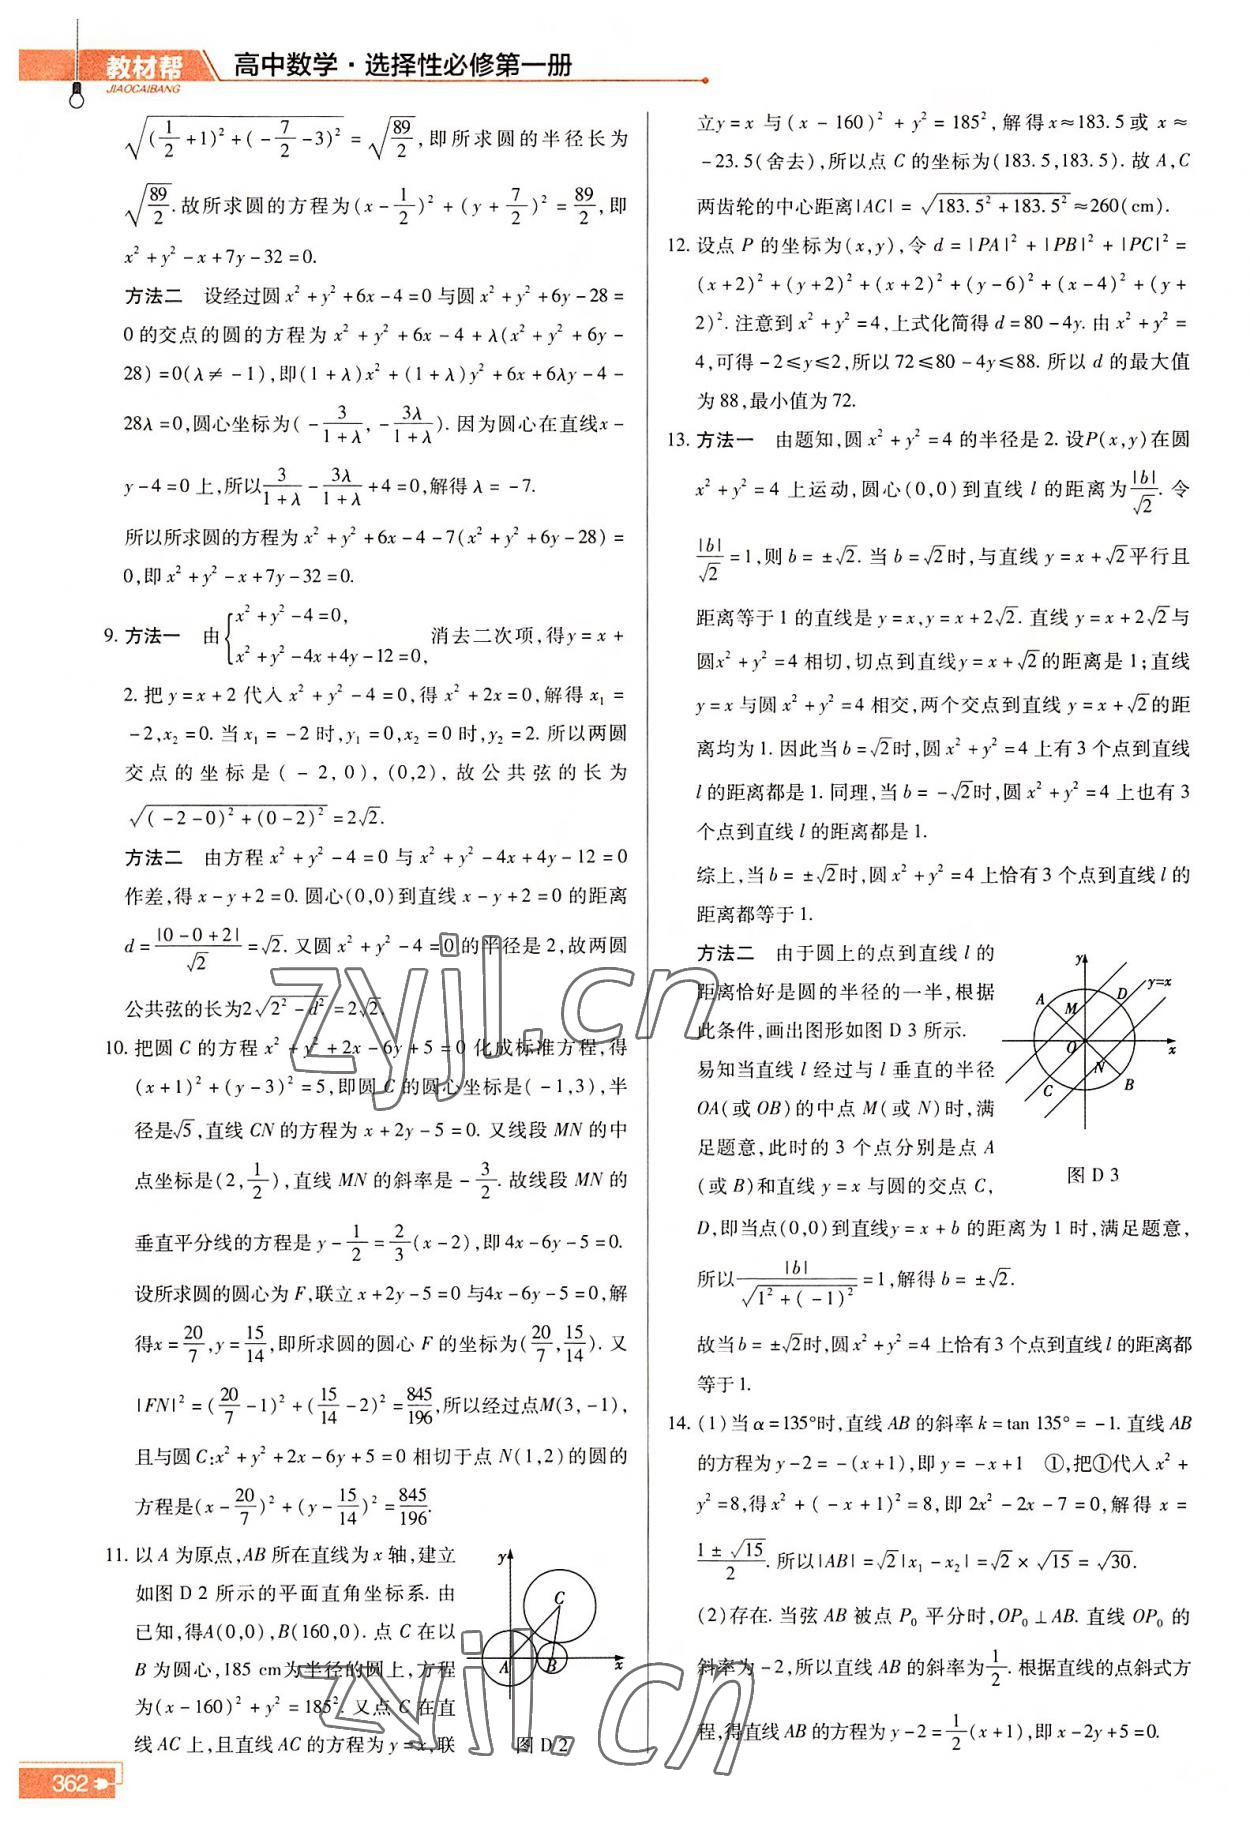 教材帮
JIAOCAIBANG
高中数学·选择性必修第一册
√((1/2+1)²+(-7/2-3)²)=√(89/2),即所求圆的半径长为
√(89/2).故所求圆的方程为(x-1/2)²+(y+7/2)²=89/2,即
x²+y²-x+7y-32=0.
方法二 设经过圆x²+y²+6x-4=0与圆x²+y²+6y-28=
0的交点的圆的方程为x²+y²+6x-4+λ(x²+y²+6y-
28)=0(λ≠-1),即(1+λ)x²+(1+λ)y²+6x+6λy-4-
28λ=0,圆心坐标为(-3/(1+λ),-3λ/(1+λ)).因为圆心在直线x-
y-4=0上,所以3/(1+λ)-3λ/(1+λ)+4=0,解得λ=-7.
所以所求圆的方程为x²+y²+6x-4-7(x²+y²+6y-28)=
0,即x²+y²-x+7y-32=0.
9. 方法一 由{x²+y²-4=0,
x²+y²-4x+4y-12=0, 消去二次项,得y=x+
2.把y=x+2代入x²+y²-4=0,得x²+2x=0,解得x₁=
-2,x₂=0.当x₁=-2时,y₁=0,x₂=0时,y₂=2.所以两圆
交点的坐标是(-2,0),(0,2),故公共弦的长为
√((-2-0)²+(0-2)²)=2√2.
方法二 由方程x²+y²-4=0与x²+y²-4x+4y-12=0
作差,得x-y+2=0.圆心(0,0)到直线x-y+2=0的距离
d=|0-0+2|/√2=√2.又圆x²+y²-4=0的半径是2,故两圆
公共弦的长为2√(2²-d²)=2√2.
10. 把圆C的方程x²+y²+2x-6y+5=0化成标准方程,得
(x+1)²+(y-3)²=5,即圆C的圆心坐标是(-1,3),半
径是√5,直线CN的方程为x+2y-5=0.又线段MN的中
点坐标是(2,1/2),直线MN的斜率是-3/2.故线段MN的
垂直平分线的方程是y-1/2=2/3(x-2),即4x-6y-5=0.
设所求圆的圆心为F,联立x+2y-5=0与4x-6y-5=0,解
得x=20/7,y=15/14,即所求圆的圆心F的坐标为(20/7,15/14).又
|FN|²=(20/7-1)²+(15/14-2)²=845/196,所以经过点M(3,-1),
且与圆C:x²+y²+2x-6y+5=0相切于点N(1,2)的圆的
方程是(x-20/7)²+(y-15/14)²=845/196.
11. 以A为原点,AB所在直线为x轴,建立
如图D2所示的平面直角坐标系.由
已知,得A(0,0),B(160,0).点C在以
B为圆心,185 cm为半径的圆上,方程
为(x-160)²+y²=185².又点C在直
线AC上,且直线AC的方程为y=x,联
y
C
A
B
x
图D2
立y=x与(x-160)²+y²=185²,解得x≈183.5或x≈
-23.5(舍去),所以点C的坐标为(183.5,183.5).故A,C
两齿轮的中心距离|AC|=√(183.5²+183.5²)≈260(cm).
12. 设点P的坐标为(x,y),令d=|PA|²+|PB|²+|PC|²=
(x+2)²+(y+2)²+(x+2)²+(y-6)²+(x-4)²+(y+
2)².注意到x²+y²=4,上式化简得d=80-4y.由x²+y²=
4,可得-2≤y≤2,所以72≤80-4y≤88.所以d的最大值
为88,最小值为72.
13. 方法一 由题知,圆x²+y²=4的半径是2.设P(x,y)在圆
x²+y²=4上运动,圆心(0,0)到直线l的距离为|b|/√2.令
|b|/√2=1,则b=±√2.当b=√2时,与直线y=x+√2平行且
距离等于1的直线是y=x,y=x+2√2.直线y=x+2√2与
圆x²+y²=4相切,切点到直线y=x+√2的距离是1;直线
y=x与圆x²+y²=4相交,两个交点到直线y=x+√2的距
离均为1.因此当b=√2时,圆x²+y²=4上有3个点到直线
l的距离都是1.同理,当b=-√2时,圆x²+y²=4上也有3
个点到直线l的距离都是1.
综上,当b=±√2时,圆x²+y²=4上恰有3个点到直线l的
距离都等于1.
方法二 由于圆上的点到直线l的
距离恰好是圆的半径的一半,根据
此条件,画出图形如图D3所示.
易知当直线l经过与l垂直的半径
OA(或OB)的中点M(或N)时,满
足题意,此时的3个点分别是点A
(或B)和直线y=x与圆的交点C,
y
y=x
A
M
D
O
x
N
C
B
图D3
D,即当点(0,0)到直线y=x+b的距离为1时,满足题意,
所以|b|/√(1²+(-1)²)=1,解得b=±√2.
故当b=±√2时,圆x²+y²=4上恰有3个点到直线l的距离都
等于1.
14. (1)当α=135°时,直线AB的斜率k=tan 135°=-1.直线AB
的方程为y-2=-(x+1),即y=-x+1 ①,把①代入x²+
y²=8,得x²+(-x+1)²=8,即2x²-2x-7=0,解得x=
(1±√15)/2.所以|AB|=√2|x₁-x₂|=√2×√15=√30.
(2)存在.当弦AB被点P₀平分时,OP₀⊥AB.直线OP₀的
斜率为-2,所以直线AB的斜率为1/2.根据直线的点斜式方
程,得直线AB的方程为y-2=1/2(x+1),即x-2y+5=0.
zyjl.cn
zyjl.cn
362